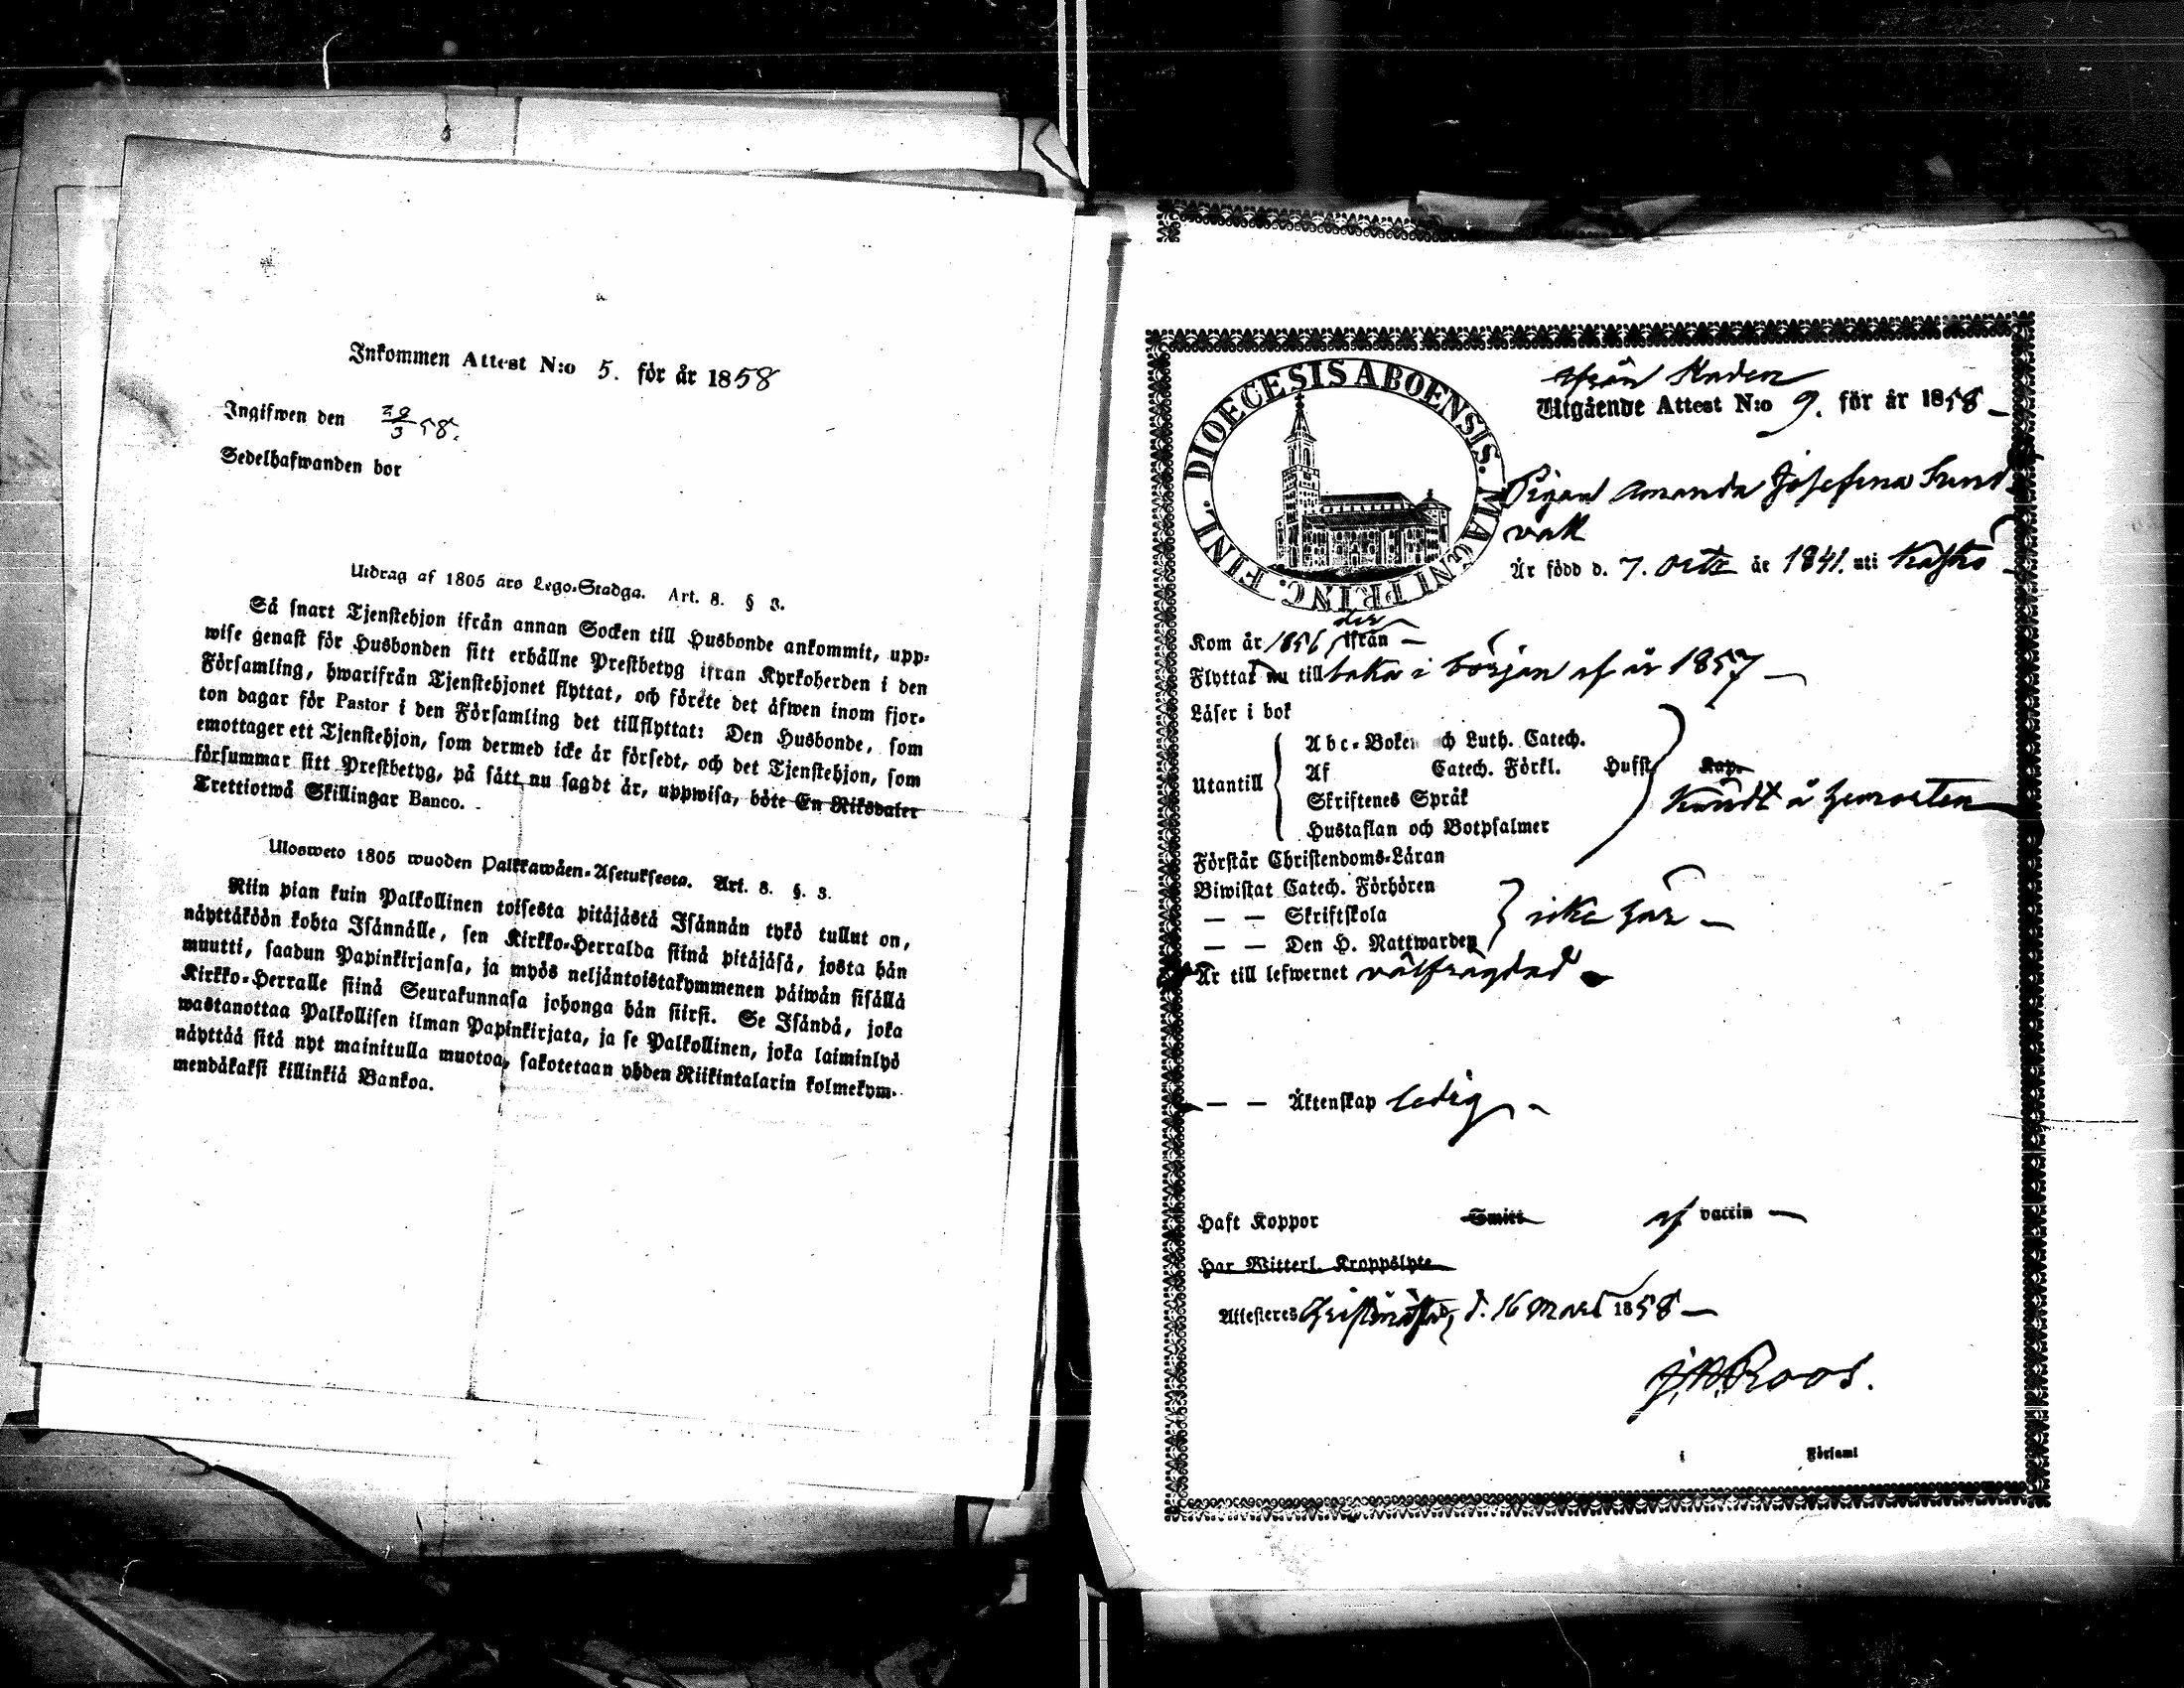 Inkommen Attest N:o 5. för år 1858
Ingifwen den 20/3 58.
Sedelhafwanden bor
Utdrag af 1805 års Lego-Stadga. Art. 8. § 3.
Så snart Tjenstehjon ifrån annan Socken till Husbonde ankommit, upp-
wise genast för Husbonden sitt erhållne Prestbetyg ifran Kyrkoherden i den
Församling, hwarifrån Tjenstehjonet flyttat, och förete det äfwen inom fjor-
ton dagar för Pastor i den Församling det tillflyttat: Den Husbonde, som
emottager ett Tjenstehjon, som dermed icke är försedt, och det Tjenstehjon, som
försummar sitt Prestbetyg, på sätt nu sagdt är, uppwisa, böte En Riksdaler
Trettiotwå Skillingar Banco.
Ulosweto 1805 wuoden Palkkawäen-Asetuksesta. Art. 8. §. 3.
Niin pian kuin Palkollinen toisesta pitäjästä Isännän tykö tullut on,
näyttäköön kohta Isännälle, sen Kirkko-Herralda siinä pitäjäsä, josta hän
muutti, saadun Papinkirjansa, ja myös neljäntoistakymmenen päiwän sisällä
Kirkko-Herralle siinä Seurakunnasa johonga hän siirsi. Se Isändä, joka
wastanottaa Palkollisen ilman Papinkirjata, ja se Palkollinen, joka laiminlyö
näyttää sitä nyt mainitulla muotoa, sakotetaan yhden Riikintalarin kolmekym-
mendäkaksi killinkiä Bankoa.
DIOECESIS ABOENSIS. MAGNI PRINC. FINL.
ifrån Staden
Utgående Attest N:o 9. för år 1858
Pigan Amanda Josefina Sund
vall
Är född d. 7. Octr år 1841. uti Kaskö
Kom år 1856, der ifrån
Flyttat nu till baka i början af år 1857
Läser i bok
Abc-Boken och Luth. Catech.
Utantill Af Catech. Förkl. Hufst. Kap.
Skriftenes Språk
Hustaflan och Botpsalmer
Kändt å hemorten
Förstår Christendoms-Läran
Biwistat Catech. Förhören
— — Skriftskola icke här
— — Den H. Nattwarden
Är till lefwernet välfrägdad
— — Äktenskap ledig
Haft Koppor Smitt af vaccin
Har Witterl. Kroppslyte
Attesteres Christinestad, d. 16 Mars 1858
Roos.
i Församl